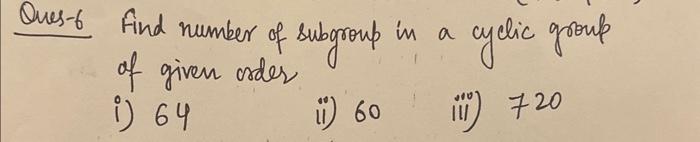 Ques-6 Find number of subgroup in a cyclic group
of given order
i) 64 ii) 60 iii) 720